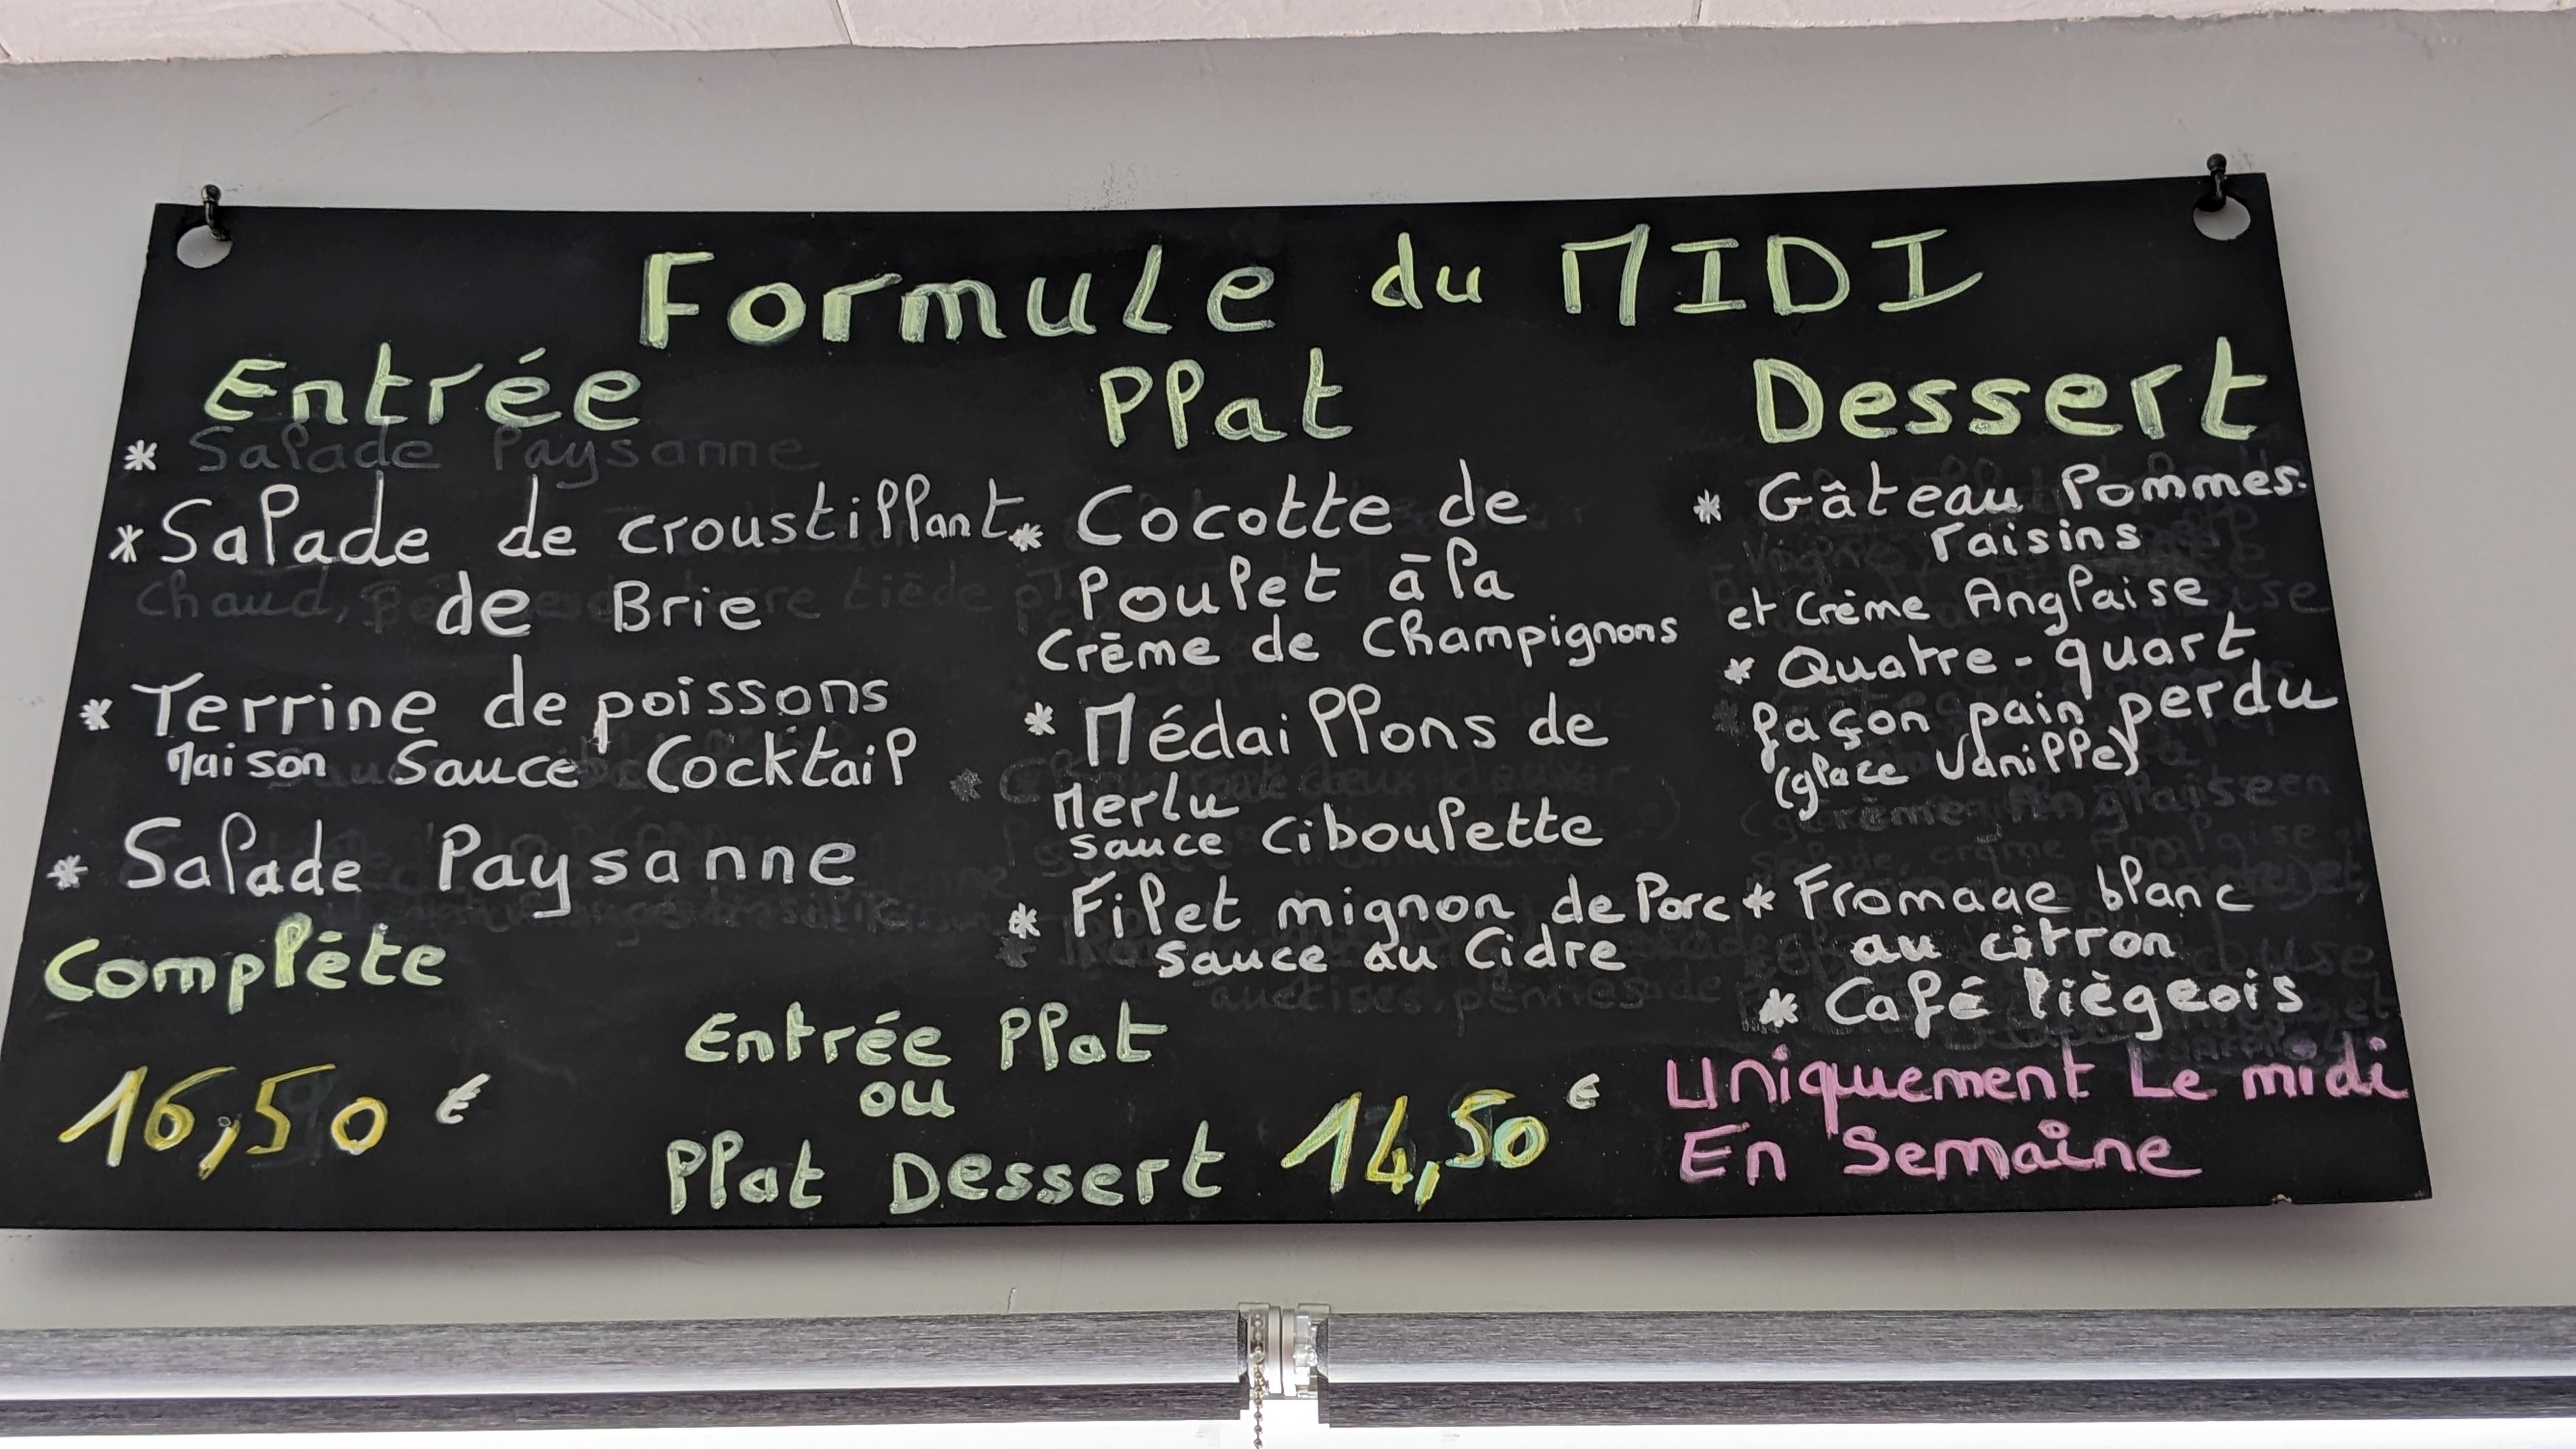 Formule du MIDI
Entrée
* Salade Paysanne
* Salade de croustillant
de Brie
* Terrine de poissons
Maison Sauce Cocktail
* Salade Paysanne
Plat
* Cocotte de
Poulet à la
Crème de Champignons
* Médaillons de
Merlu
sauce Ciboulette
* Filet mignon de Porc
sauce au Cidre
Dessert
* Gâteau Pommes-
raisins
et Crème Anglaise
* Quatre-quart
façon pain perdu
(glace Vanille)
* Fromage blanc
au citron
* Café liègeois
Complète
16,50 €
Entrée Plat
ou
Plat Dessert 14,50 €
Uniquement Le midi
En Semaine